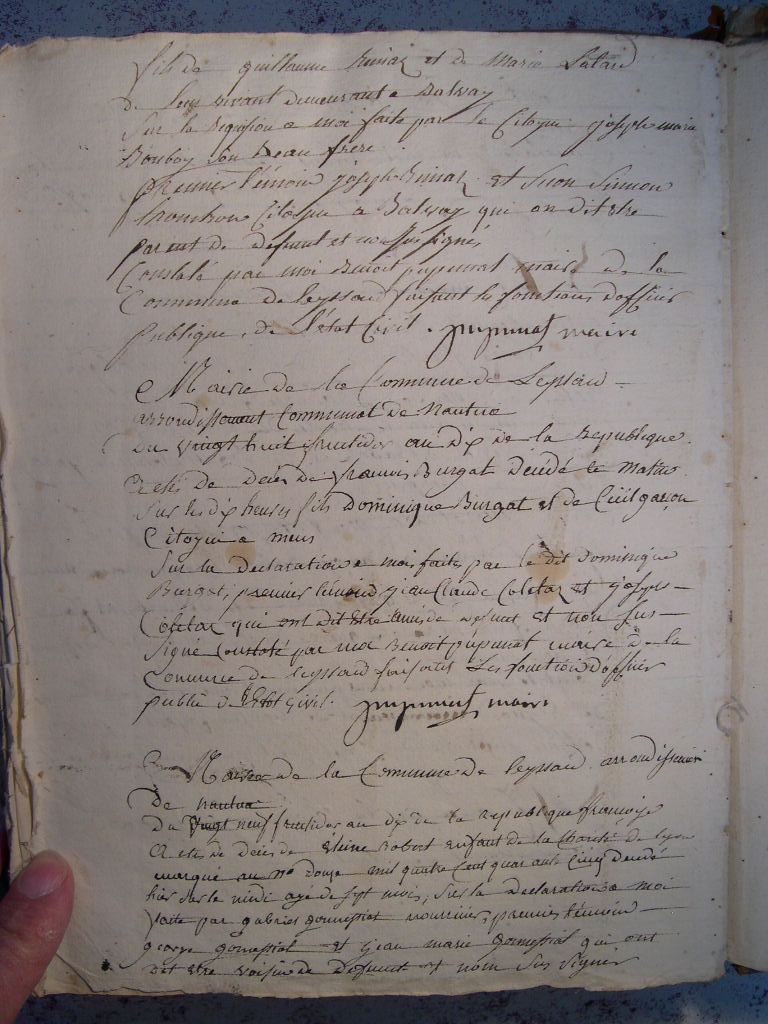 fils de guillaume humar et de Marie
de leur vivant demeurant a Balvay
Sur la Requisition a moi faite par le Citoyen joseph marie
Bonboy son beau frère
premier témoin joseph humar et Suon Simeon
Citoyen a Balvay qui on dit être
parent de defunt et non sus signés
Constaté par moi Benoit pupunat maire de la
Commune de leyssard faisant les fonctions d'officier
publique de l'état Civil. pupunat maire
Mairie de la Commune de Leyssard
arrondissement Communal de Nantua
Du vingt huit fructidor an dix de la Republique
actes de deces de francois Burgat Décédé le matin
Sur les dix heures fils Dominique Burgat et de
Citoyen a
Sur la declaration a moi faite par le dit Dominique
Burgat, premier témoin jean Claude Coletaz et joseph
Coletaz qui ont dit être amis de defunt et non sus
signé Constaté par moi Benoit pupunat maire de la
Commune de leyssard faisant Les fonction d'officier
public de l'état Civil. pupunat maire
Mairie de la Commune de leyssard arrondissement
De nantua
Du Vingt neuf fructidor an dix de la republique françoise
actes de deces de Robert enfant de la Charité de lyon
marqué au no douze mil quatre Cent quarante Cinq decedé
hier sur le midi agé de sept mois, Sur la declaration a moi
faite par gabriel gomessiat nourricier, premier témoin
george gomessiat et jean marie gomessiat qui ont
dit etre voisin de defunt et nom sus signer